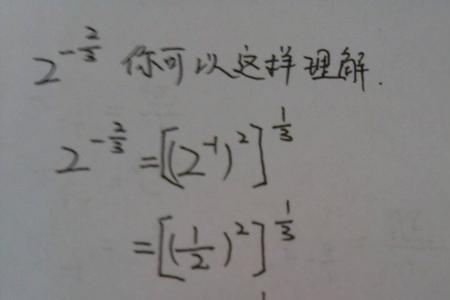 2^{-\frac{2}{3}} 你可以这样理解.
2^{-\frac{2}{3}} = [(2^{-1})^2]^{\frac{1}{3}}
= [(\frac{1}{2})^2]^{\frac{1}{3}}